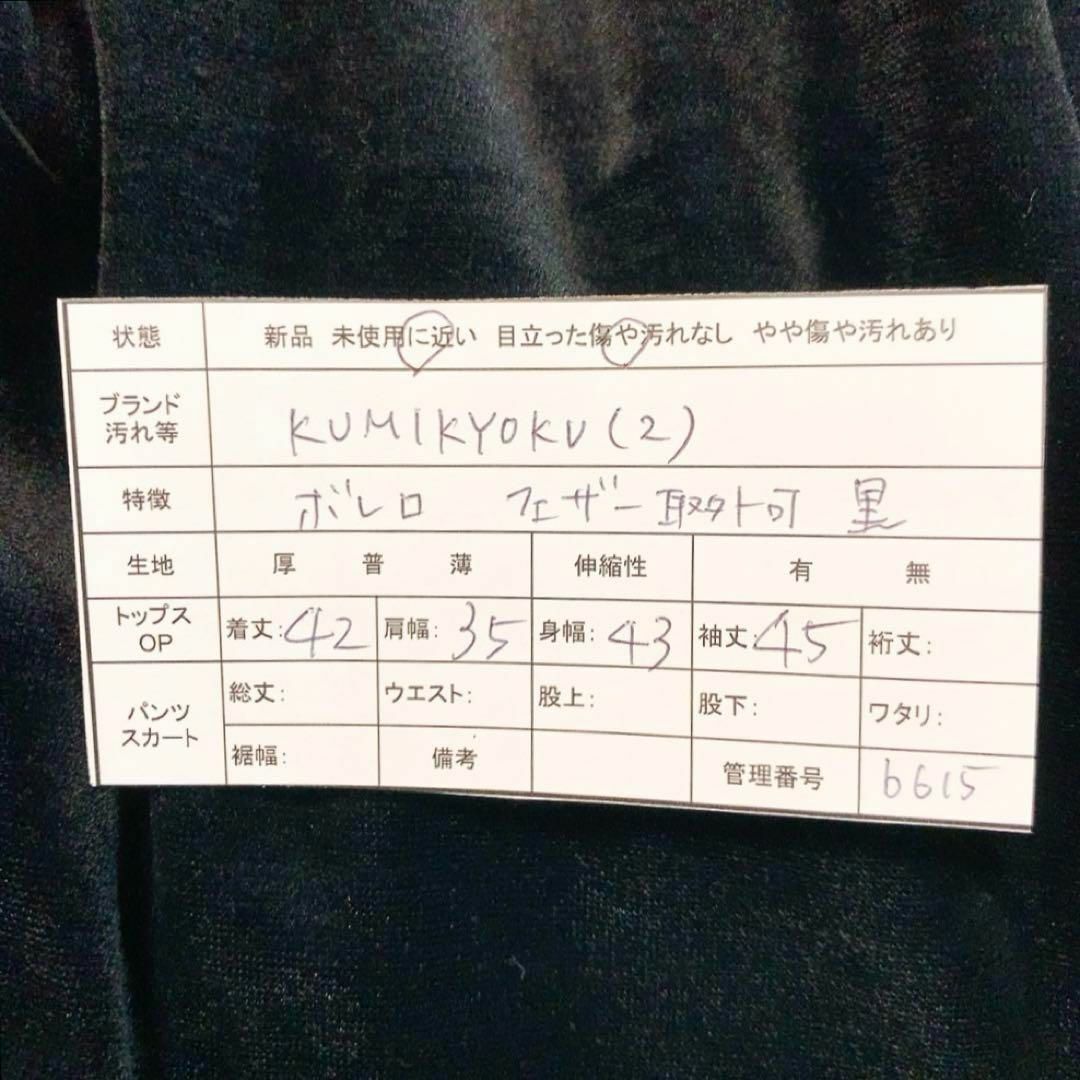 状態 新品 未使用に近い 目立った傷や汚れなし やや傷や汚れあり
ブランド
汚れ等
KUMIKYOKU(2)
特徴 ボレロ フェザー取外可 黒
生地 厚 普 薄 伸縮性 有 無
トップス
OP
着丈:42 肩幅:35 身幅:43 袖丈:45 裄丈:
パンツ
スカート
総丈: ウエスト: 股上: 股下: ワタリ:
裾幅: 備考 管理番号 6615